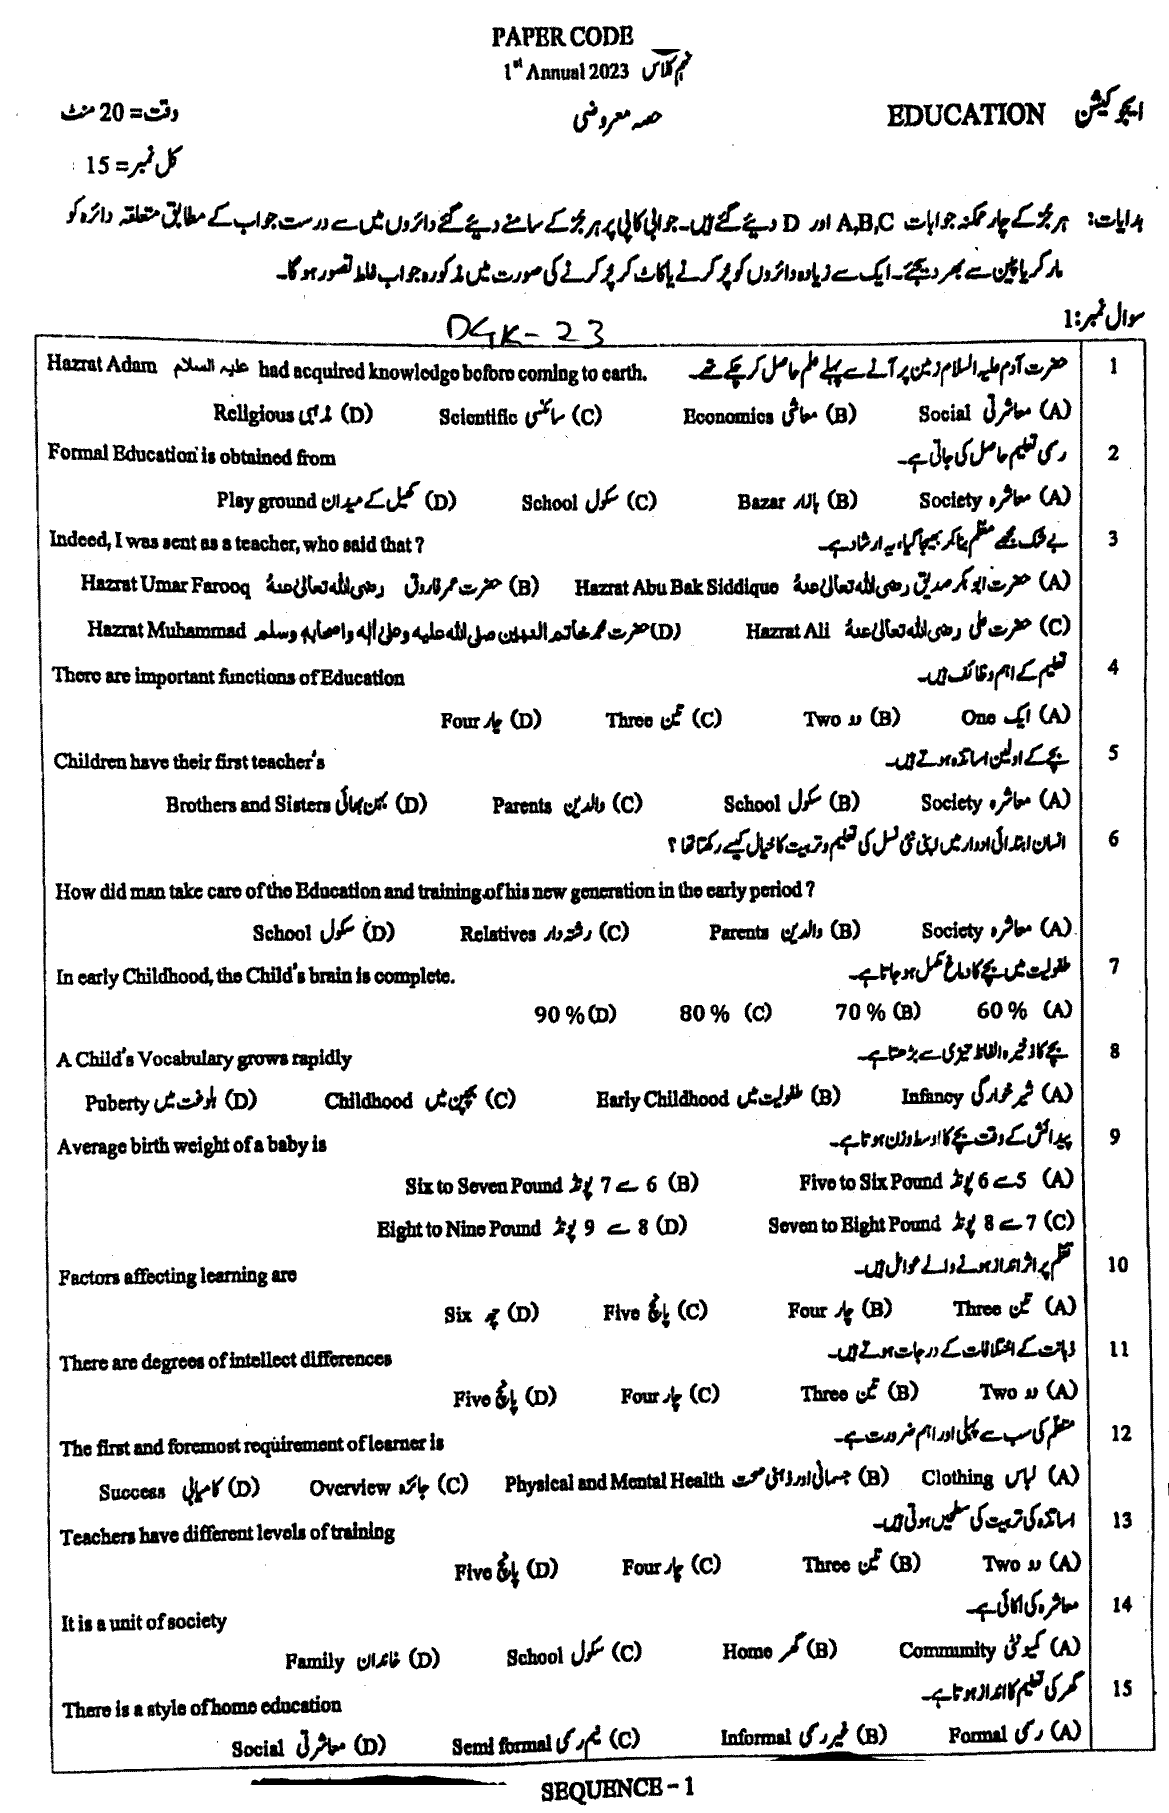 PAPER CODE
1st Annual 2023 نہم کلاس
ایجوکیشن EDUCATION حصہ معروضی وقت = 20 منٹ
کل نمبر = 15
ہدایات: ہر جُز کے چار ممکنہ جوابات A,B,C اور D دیئے گئے ہیں۔ جوابی کاپی پر ہر جُز کے سامنے دیئے گئے دائروں میں سے درست جواب کے مطابق متعلقہ دائرہ کو
مارکر یا پین سے بھر دیجئے۔ ایک سے زیادہ دائروں کو پُر کرنے یا کاٹ کر پُر کرنے کی صورت میں مذکورہ جواب غلط تصور ہو گا۔
سوال نمبر 1:
DGK-23
1 حضرت آدم علیہ السلام زمین پر آنے سے پہلے علم حاصل کر چکے تھے۔ Hazrat Adam علیہ السلام had acquired knowledge before coming to earth.
(A) معاشرتی Social (B) معاشی Economics (C) سائنسی Scientific (D) مذہبی Religious
2 رسمی تعلیم حاصل کی جاتی ہے۔ Formal Education is obtained from
(A) معاشرہ Society (B) بازار Bazar (C) سکول School (D) کھیل کے میدان Play ground
3 بے شک مجھے معلم بنا کر بھیجا گیا، یہ ارشاد ہے۔ Indeed, I was sent as a teacher, who said that ?
(A) حضرت ابوبکر صدیق رضی اللہ تعالیٰ عنہ Hazrat Abu Bak Siddique (B) حضرت عمر فاروق رضی اللہ تعالیٰ عنہ Hazrat Umar Farooq
(C) حضرت علی رضی اللہ تعالیٰ عنہ Hazrat Ali (D) حضرت محمد خاتم النبیین صلی اللہ علیہ وعلی آلہ واصحابہ وسلم Hazrat Muhammad
4 تعلیم کے اہم وظائف ہیں۔ There are important functions of Education
(A) ایک One (B) دو Two (C) تین Three (D) چار Four
5 بچے کے اولین اساتذہ ہوتے ہیں۔ Children have their first teacher's
(A) معاشرہ Society (B) سکول School (C) والدین Parents (D) بہن بھائی Brothers and Sisters
6 انسان ابتدائی ادوار میں اپنی نئی نسل کی تعلیم و تربیت کا خیال کیسے رکھتا تھا ؟
How did man take care of the Education and training of his new generation in the early period ?
(A) معاشرہ Society (B) والدین Parents (C) رشتہ دار Relatives (D) سکول School
7 طفولیت میں بچے کا دماغ مکمل ہو جاتا ہے۔ In early Childhood, the Child's brain is complete.
(A) 60 % (B) 70 % (C) 80 % (D) 90 %
8 بچے کا ذخیرہ الفاظ تیزی سے بڑھتا ہے۔ A Child's Vocabulary grows rapidly
(A) شیر خوارگی Infancy (B) طفولیت میں Early Childhood (C) بچپن میں Childhood (D) بلوغت میں Puberty
9 پیدائش کے وقت بچے کا اوسط وزن ہوتا ہے۔ Average birth weight of a baby is
(A) 5 سے 6 پونڈ Five to Six Pound (B) 6 سے 7 پونڈ Six to Seven Pound
(C) 7 سے 8 پونڈ Seven to Eight Pound (D) 8 سے 9 پونڈ Eight to Nine Pound
10 تعلم پر اثرانداز ہونے والے عوامل ہیں۔ Factors affecting learning are
(A) تین Three (B) چار Four (C) پانچ Five (D) چھ Six
11 ذہانت کے اختلافات کے درجات ہوتے ہیں۔ There are degrees of intellect differences
(A) دو Two (B) تین Three (C) چار Four (D) پانچ Five
12 متعلم کی سب سے پہلی اور اہم ضرورت ہے۔ The first and foremost requirement of learner is
(A) لباس Clothing (B) جسمانی اور ذہنی صحت Physical and Mental Health (C) جائزہ Overview (D) کامیابی Success
13 اساتذہ کی تربیت کی سطحیں ہوتی ہیں۔ Teachers have different levels of training
(A) دو Two (B) تین Three (C) چار Four (D) پانچ Five
14 معاشرہ کی اکائی ہے۔ It is a unit of society
(A) کمیونٹی Community (B) گھر Home (C) سکول School (D) خاندان Family
15 گھر کی تعلیم کا انداز ہوتا ہے۔ There is a style of home education
(A) رسمی Formal (B) غیر رسمی Informal (C) نیم رسمی Semi formal (D) معاشرتی Social
SEQUENCE - 1